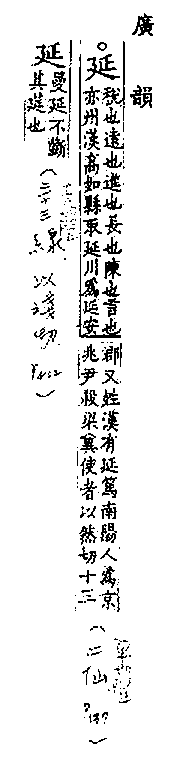 廣韻
延 稅也遠也進也長也陳也言也
亦州漢高奴縣取延川爲延安
郡又姓漢有延篤南陽人爲京
兆尹殺梁冀使者以然切十三
(二仙 P137)
延 曼延不斷
其延也
(三十三線 以淺切